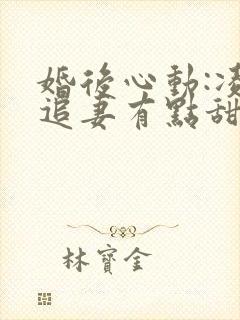 婚後心動:
追妻有點甜
林寶金